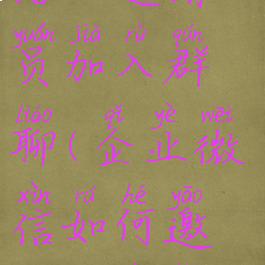 yuán jiā rù qún
员加入群
liáo qǐ yè wēi
聊(企业微
xìn rú hé yāo
信如何邀